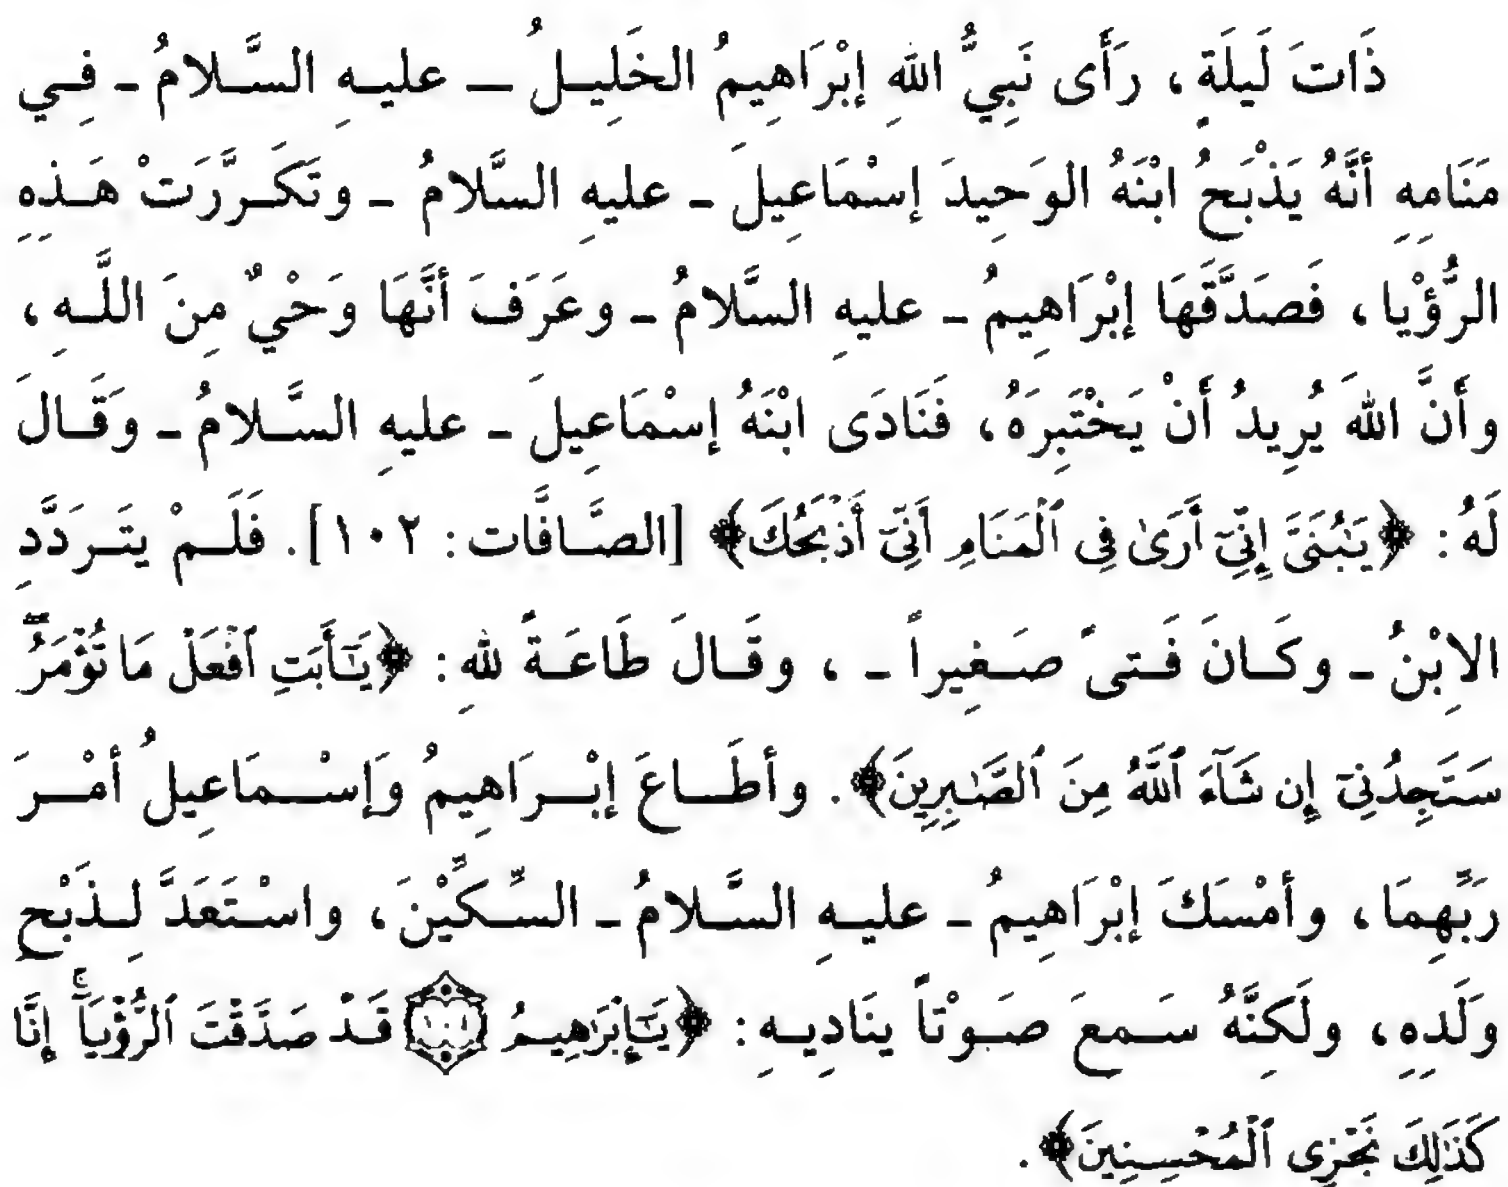 ذَاتَ لَيلَةٍ، رَأَى نَبِيُّ اللهِ إبْرَاهِيمُ الخَلِيـلُ ـ عليـهِ السَّـلامُ ـ فِـي
مَنَامِهِ أنَّهُ يَذْبَحُ ابْنَهُ الوَحِيدَ إسْمَاعِيلَ ـ عليهِ السَّلامُ ـ وتَكَـرَّرَتْ هَـذِهِ
الرُّؤْيا، فَصَدَّقَهَا إبْرَاهِيمُ ـ عليهِ السَّلامُ ـ وعَرَفَ أنَّهَا وَحْيٌ مِنَ اللَّـهِ،
وأَنَّ اللهَ يُرِيدُ أَنْ يَخْتَبِرَهُ، فَنَادَى ابْنَهُ إسْمَاعِيلَ ـ عليهِ السَّـلامُ ـ وقَـالَ
لَهُ: ﴿يَٰبُنَىَّ إِنِّىٓ أَرَىٰ فِى ٱلْمَنَامِ أَنِّىٓ أَذْبَحُكَ﴾ [الصَّـافَّات: ١٠٢]. فَلَـمْ يتَـرَدَّدِ
الاِبْنُ ـ وكَـانَ فَـتىً صـَغِيراً ـ ، وقَـالَ طَاعَـةً للهِ: ﴿يَٰٓأَبَتِ ٱفْعَلْ مَا تُؤْمَرُۖ
سَتَجِدُنِىٓ إِن شَآءَ ٱللَّهُ مِنَ ٱلصَّٰبِرِينَ﴾. وأطَـاعَ إبْـرَاهِيمُ وَإسْـمَاعِيلُ أمْـرَ
رَبِّهِمَا، وأمْسَكَ إبْرَاهِيمُ ـ عليـهِ السَّـلامُ ـ السِّـكِّيْنَ، واسْـتَعَدَّ لِـذَبْحِ
وَلَدِهِ، ولَكِنَّهُ سَـمعَ صَـوْتاً ينَادِيـهِ: ﴿يَٰٓإِبْرَٰهِيمُ ١٠٤ قَدْ صَدَّقْتَ ٱلرُّؤْيَآۚ إِنَّا
كَذَٰلِكَ نَجْزِى ٱلْمُحْسِنِينَ﴾.